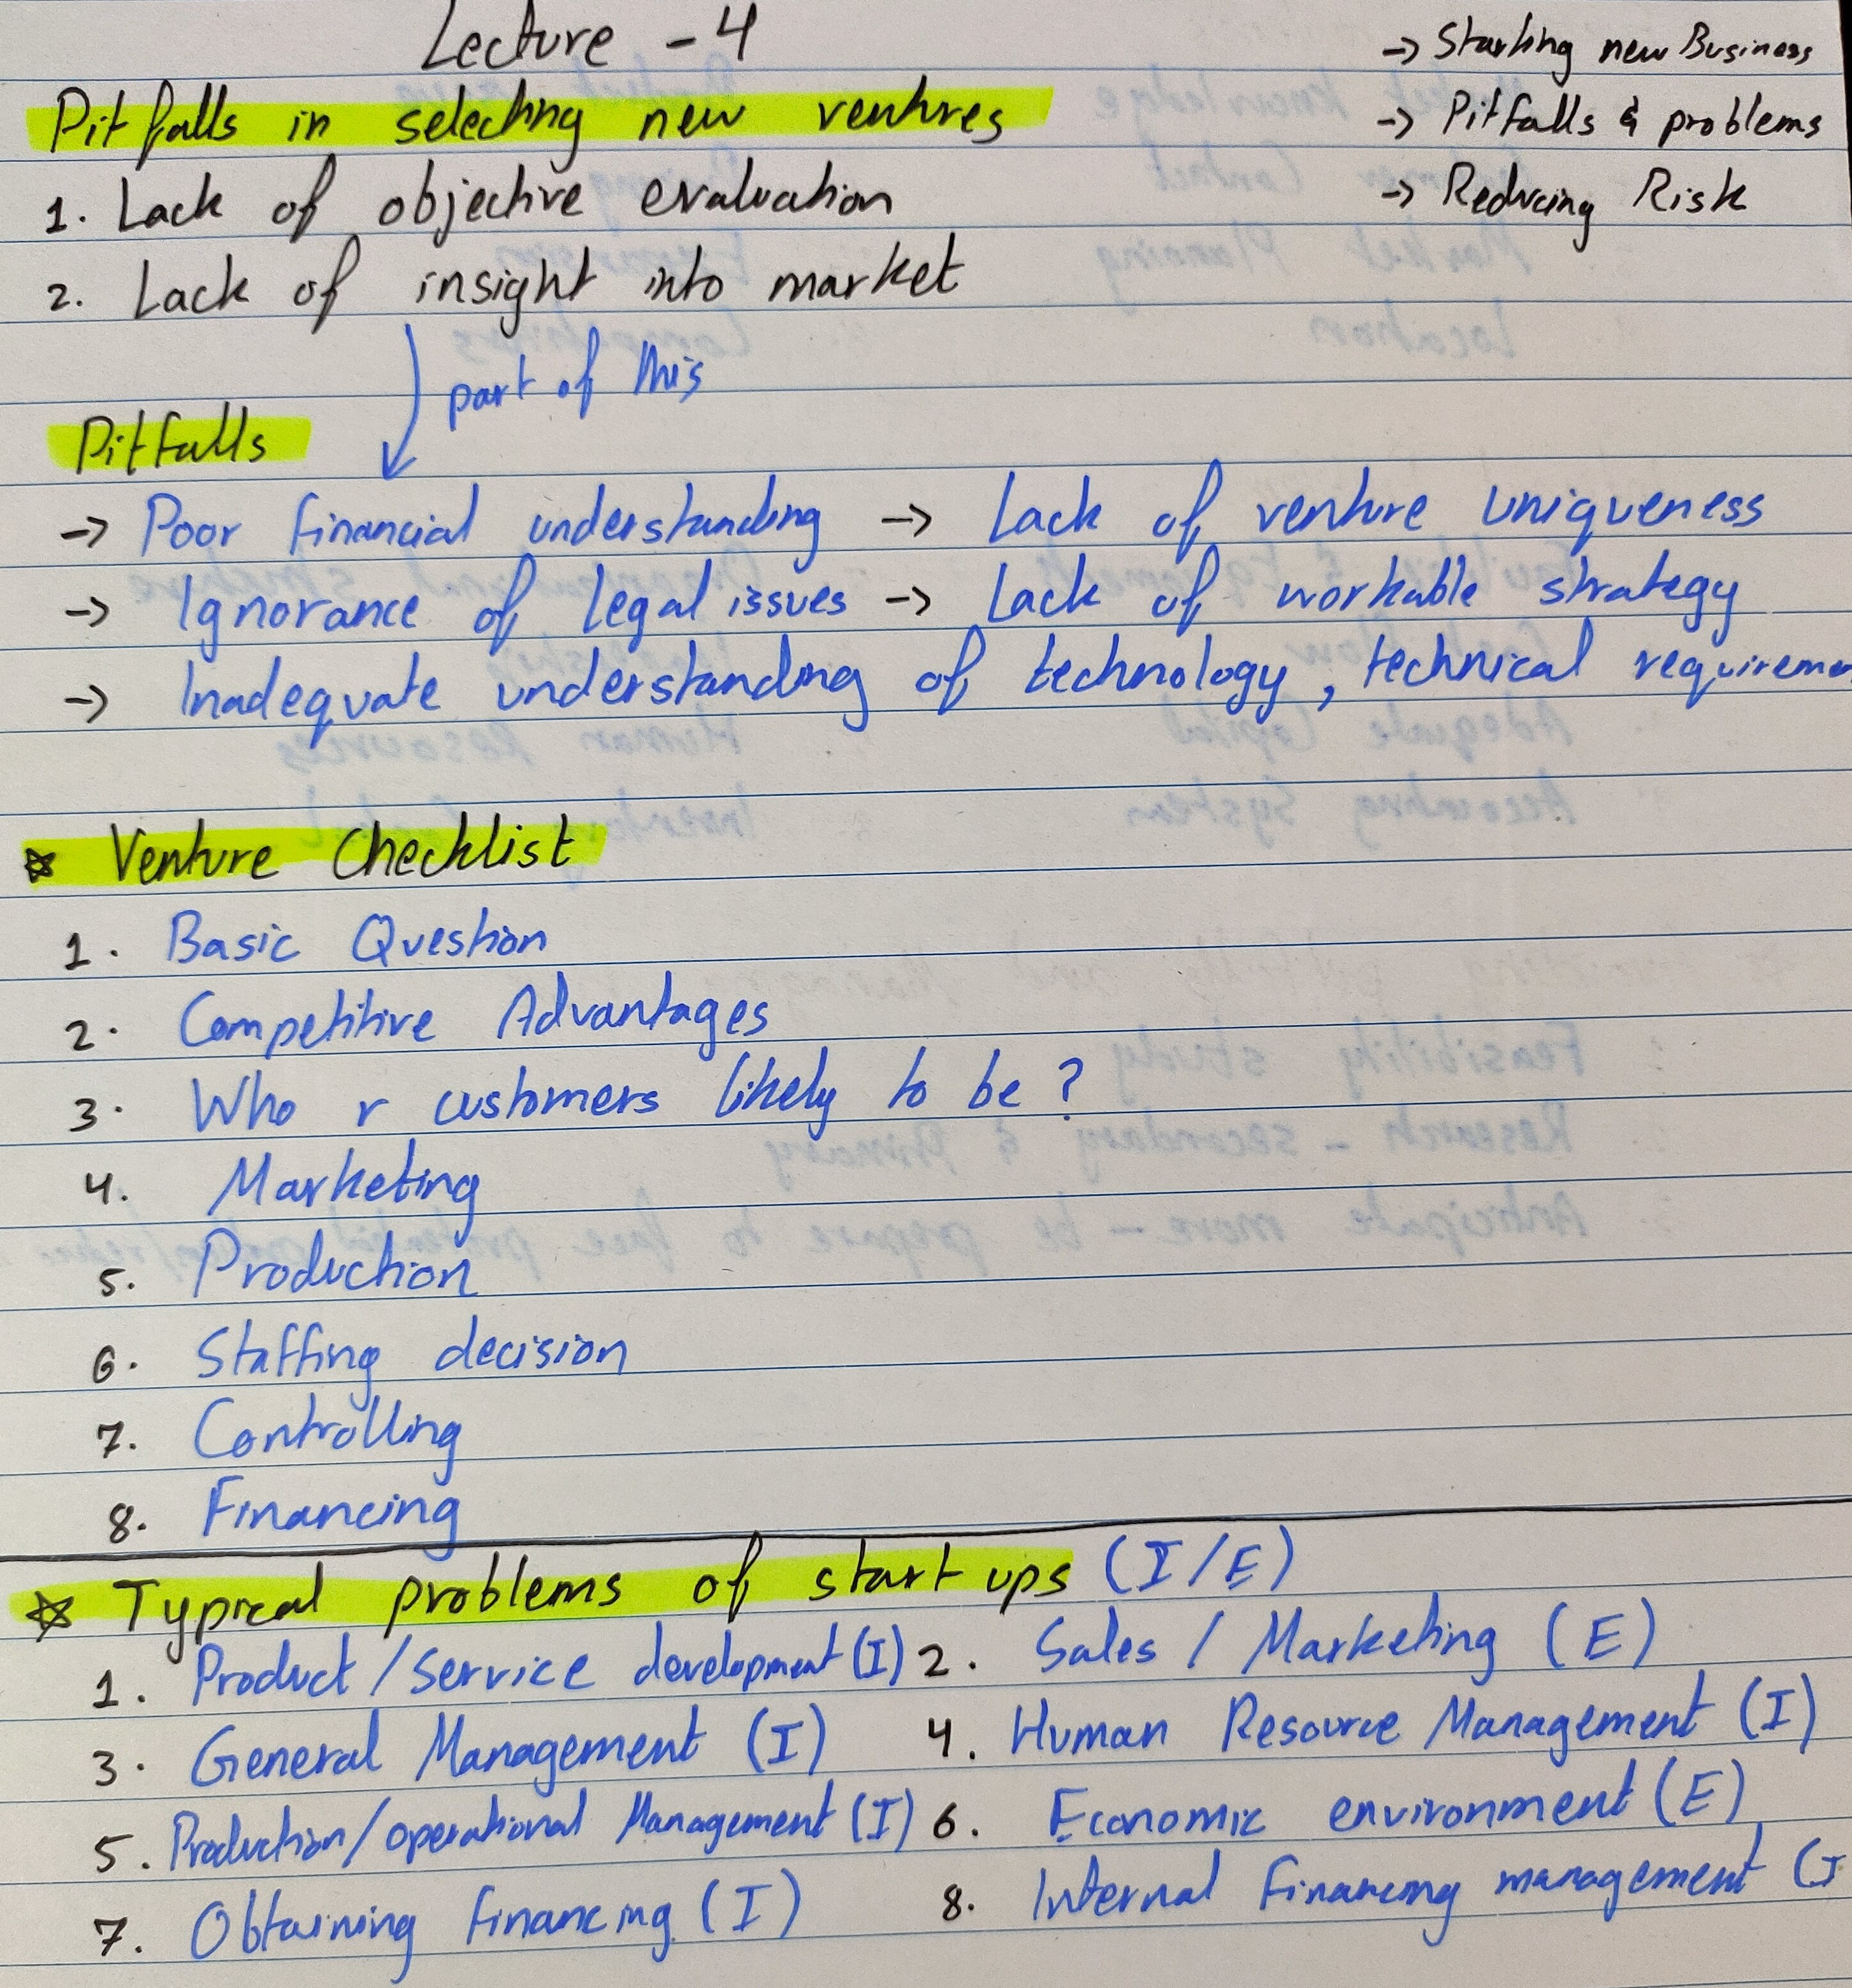 Lecture - 4
→ Starting new Business
→ Pitfalls & problems
→ Reducing Risk
Pitfalls in selecting new ventures
1. Lack of objective evaluation
2. Lack of insight into market
part of this
Pitfalls
→ Poor financial understanding → Lack of venture uniqueness
→ Ignorance of legal issues → Lack of workable strategy
→ Inadequate understanding of technology, technical requiremen
☆ Venture Checklist
1. Basic Question
2. Competitive Advantages
3. Who r customers likely to be?
4. Marketing
5. Production
6. Staffing decision
7. Controlling
8. Financing
☆ Typical problems of start ups (I/E)
1. Product/Service development (I) 2. Sales / Marketing (E)
3. General Management (I) 4. Human Resource Management (I)
5. Production/operational Management (I) 6. Economic environment (E)
7. Obtaining financing (I) 8. Internal financing management (I